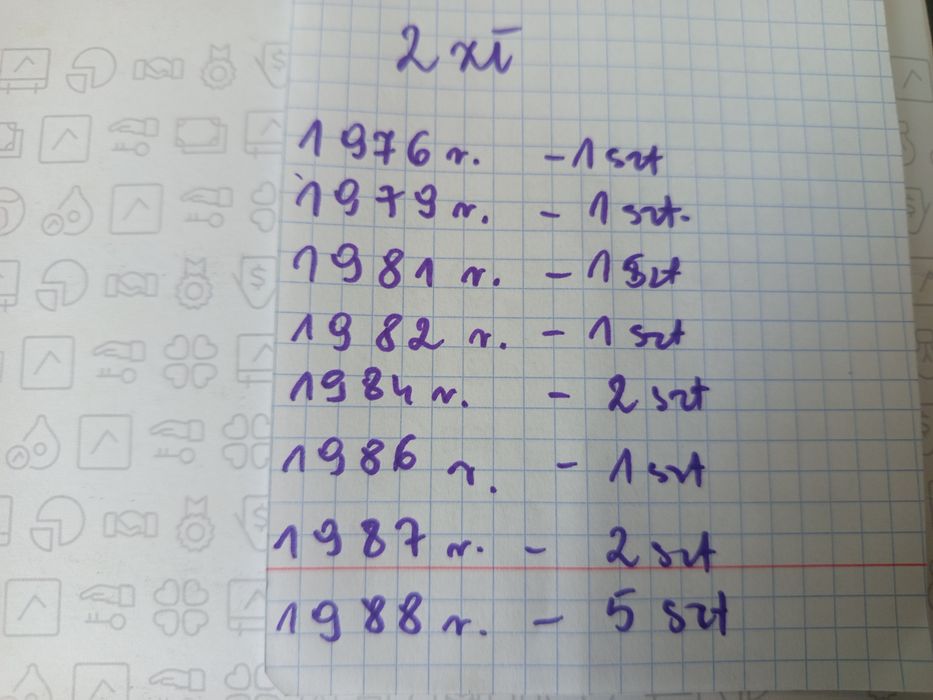 2 zł
1976 r. - 1 szt
1979 r. - 1 szt.
1981 r. - 1 szt
1982 r. - 1 szt
1984 r. - 2 szt
1986 r. - 1 szt
1987 r. - 2 szt
1988 r. - 5 szt